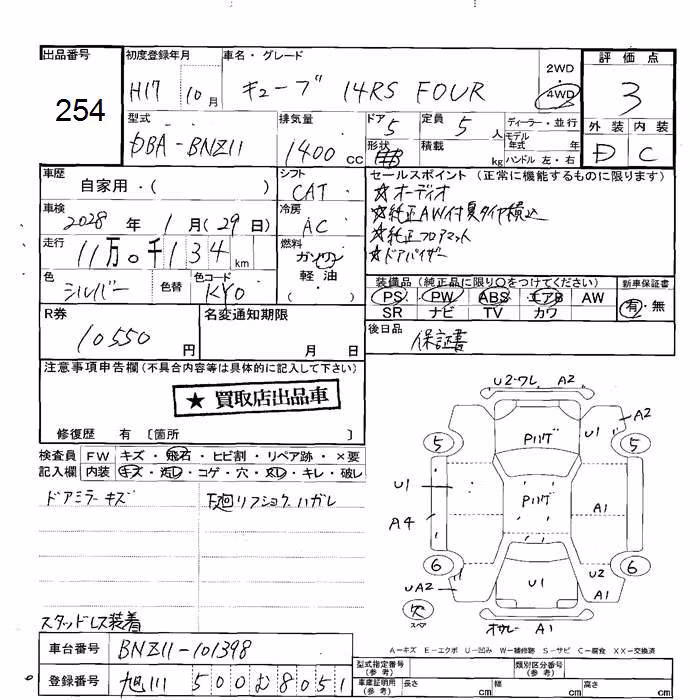 出品番号
254
初度登録年月
H17 10月
車名・グレード
キューブ 14RS FOUR
2WD
4WD
評価点
3
外装 内装
D C
型式
DBA-BNZ11
排気量
1400cc
ドア
5
定員
5人
形状
積載
kg
ディーラー・並行
モデル年式 年
ハンドル 左・右
車歴
自家用・( )
シフト
CAT
セールスポイント (正常に機能するものに限ります)
☆オーディオ
☆純正AW付夏タイヤ積込
☆純正フロアマット
☆ドアバイザー
車検
2028年 1月(29日)
冷房
AC
走行
11万0千134km
燃料
ガソリン
軽油
( )
色
シルバー
色替
色コード
KY0
装備品 (純正品に限り〇をつけてください)
PS PW ABS エアB AW
SR ナビ TV カワ
新車保証書
有・無
R券
10550円
名変通知期限
月 日
後日品
保証書
注意事項申告欄 (不具合内容等は具体的に記入して下さい)
★ 買取店出品車
修復歴 有 〔箇所 〕
検査員記入欄
FW キズ・飛石・ヒビ割・リペア跡・×要
内装 キズ・汚レ・コゲ・穴・欠レ・キレ・破レ
ドアミラーキズ
下廻リフショク、ハガレ
スタッドレス装着
U2-ワレ A2
A2
U1
Pハゲ
5 5
U1
Pハゲ
A4
A1
6 6
UA2
U1
U2
A1
穴
スペア
オサレ A1
A-キズ E-エクボ U-凹み W-補修跡 S-サビ C-腐食 XX-交換済
車台番号
BNZ11-101398
登録番号
旭川 500 む 8051
型式指定番号(参考)
類別区分番号(参考)
車庫証明用(参考)
長さ cm 幅 cm 高さ cm